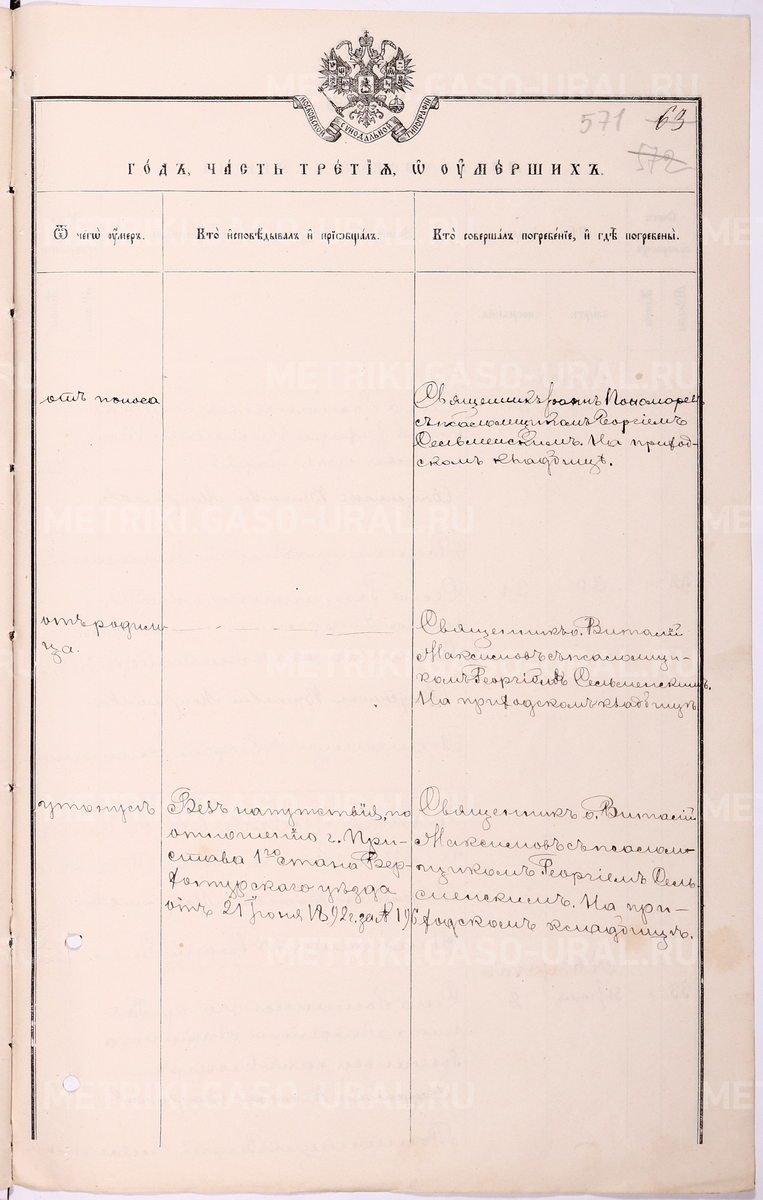 МОСКОВСКОЙ СѴНОДАЛЬНОЙ ТИПОГРАФІИ
571 63
572
ГО́ДЪ, ЧА́СТЬ ТРЕ́ТІѦ, Ѡ҆ ОУ҆МЕ́РШИХЪ.
Ѿ чегѡ̀ оу҆́меръ.
Кто̀ и҆сповѣ́дывалъ и҆ прїѡбща́лъ.
Кто̀ соверша́лъ погребе́нїе, и҆ гдѣ̀ погребены̀.
отъ поноса
Священникъ Іоаннъ Пономаревъ
съ псаломщикомъ Георгіемъ
Сельменскимъ. На приход-
скомъ кладбищѣ.
отъ родим-
ца.
Священникъ о. Виталій
Максимовъ съ псаломщи-
комъ Георгіемъ Сельменскимъ.
На приходскомъ кладбищѣ
утонулъ
Безъ напутствія, по
отношенію г. При-
става 1го стана Вер-
хотурскаго уѣзда
отъ 21 Іюня 1892 г. за №
Священникъ о. Виталій
Максимовъ съ псаломщ-
щикомъ Георгіемъ Сель-
менскимъ. На при-
ходскомъ кладбищѣ.
METRIKI.GASO-URAL.RU